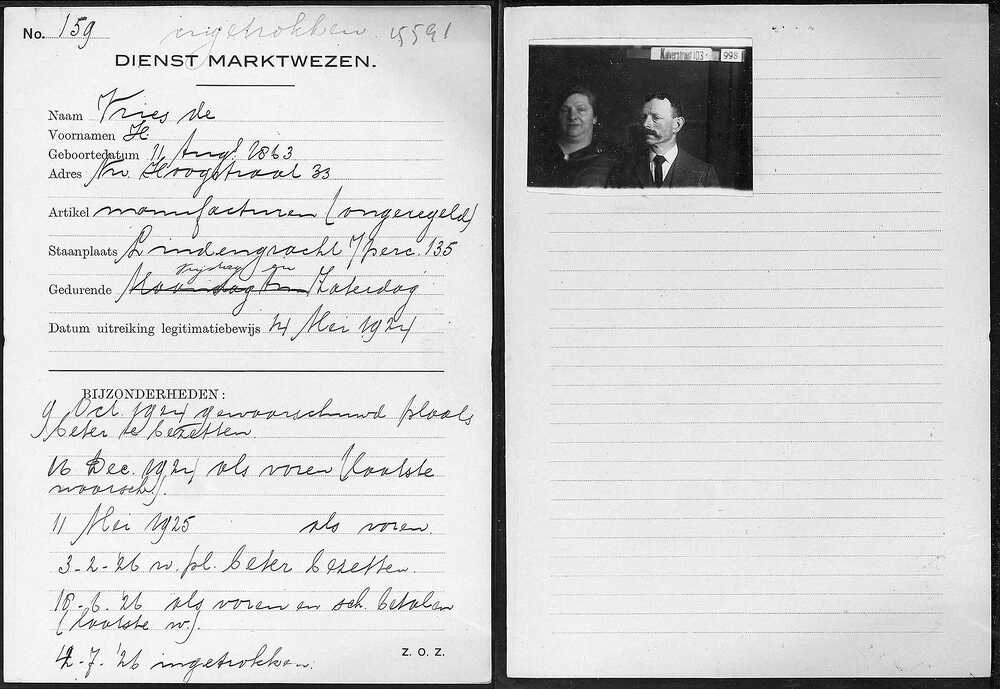 No. 159 ingetrokken 15591
DIENST MARKTWEZEN.
Naam Vries de
Voornamen H
Geboortedatum 11 Aug. 1863
Adres Nw. Hoogstraat 33
Artikel manufacturen (ongeregeld)
Staanplaats Lindengracht 7/perc. 135
Vrijdag en
Gedurende Maandag en Zaterdag
Datum uitreiking legitimatiebewijs 14 Mei 1924
BIJZONDERHEDEN:
9 Oct. 1924 gewaarschuwd plaats
beter te bezetten.
16 Dec. 1924 als voren (laatste
waarsch).
11 Mei 1925 als voren.
3-2-'26 w. pl. beter bezetten.
18-6-'26 als voren en sch. betalen
(laatste w).
12-7-'26 ingetrokken.
Z. O. Z.
Kalverstraat 103
998